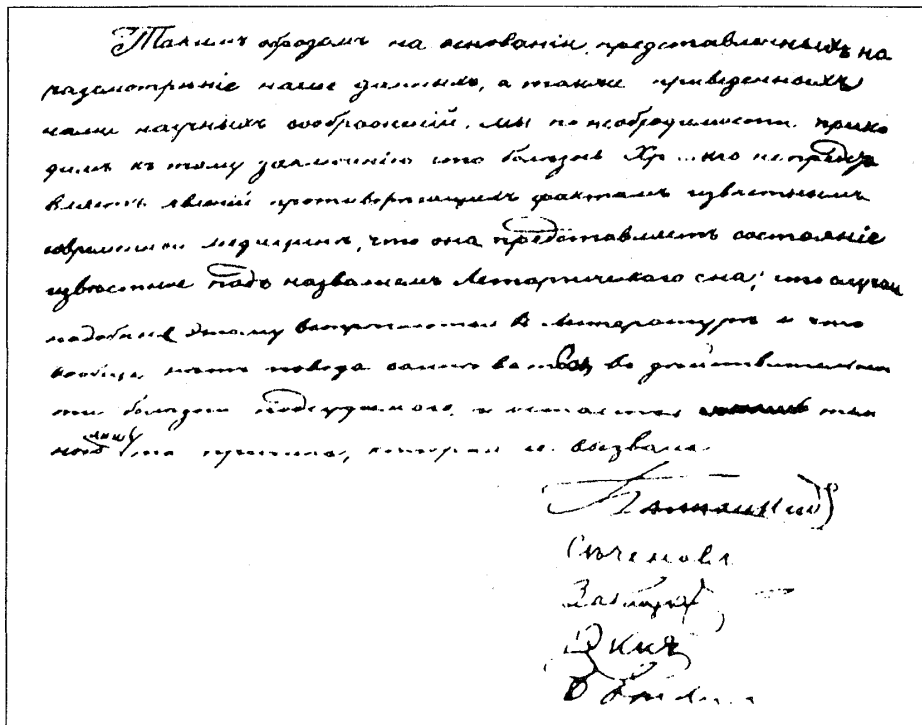 Такимъ образомъ на основаніи представленныхъ на
разсмотрѣніе наше данныхъ, а также приведенныхъ
нами научныхъ соображеній, мы по необходимости прихо
димъ къ тому заключенію что болѣзнь Хр...каго не предс
вляетъ явленій противорѣчащихъ фактамъ извѣстнымъ
современной медицинѣ, что она представляетъ состояніе
извѣстное подъ названіемъ летаргическаго сна; что случаи
подобные этому встрѣчаются въ литературѣ и что
вообще нѣтъ повода сомнѣваться въ дѣйствительнос
ти болѣзни подсудимаго, и остается тем
ною лишь та причина, которая ее вызвала.
Сѣченовъ